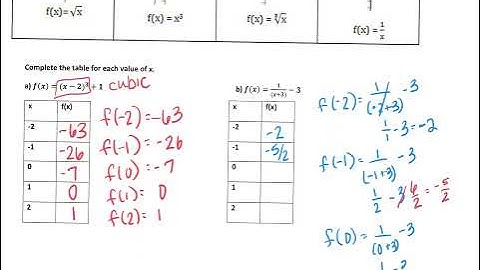 f(x)=√x
f(x)= x³
f(x)= ∛x
f(x)= 1/x
Complete the table for each value of x.
a) f(x) = (x − 2)³ + 1 cubic
x f(x)
-2 -63
-1 -26
0 -7
1 0
2 1
f(-2) = -63
f(-1) = -26
f(0) = -7
f(1) = 0
f(2) = 1
b) f(x) = 1/(x+3) − 3
x f(x)
-2 -2
-1 -5/2
0
1
2
f(-2) = 1/(-2+3) - 3
1/1 - 3 = -2
f(-1) = 1/(-1+3) - 3
1/2 - 3 6/2 = -5/2
f(0) = 1/(0+3) - 3